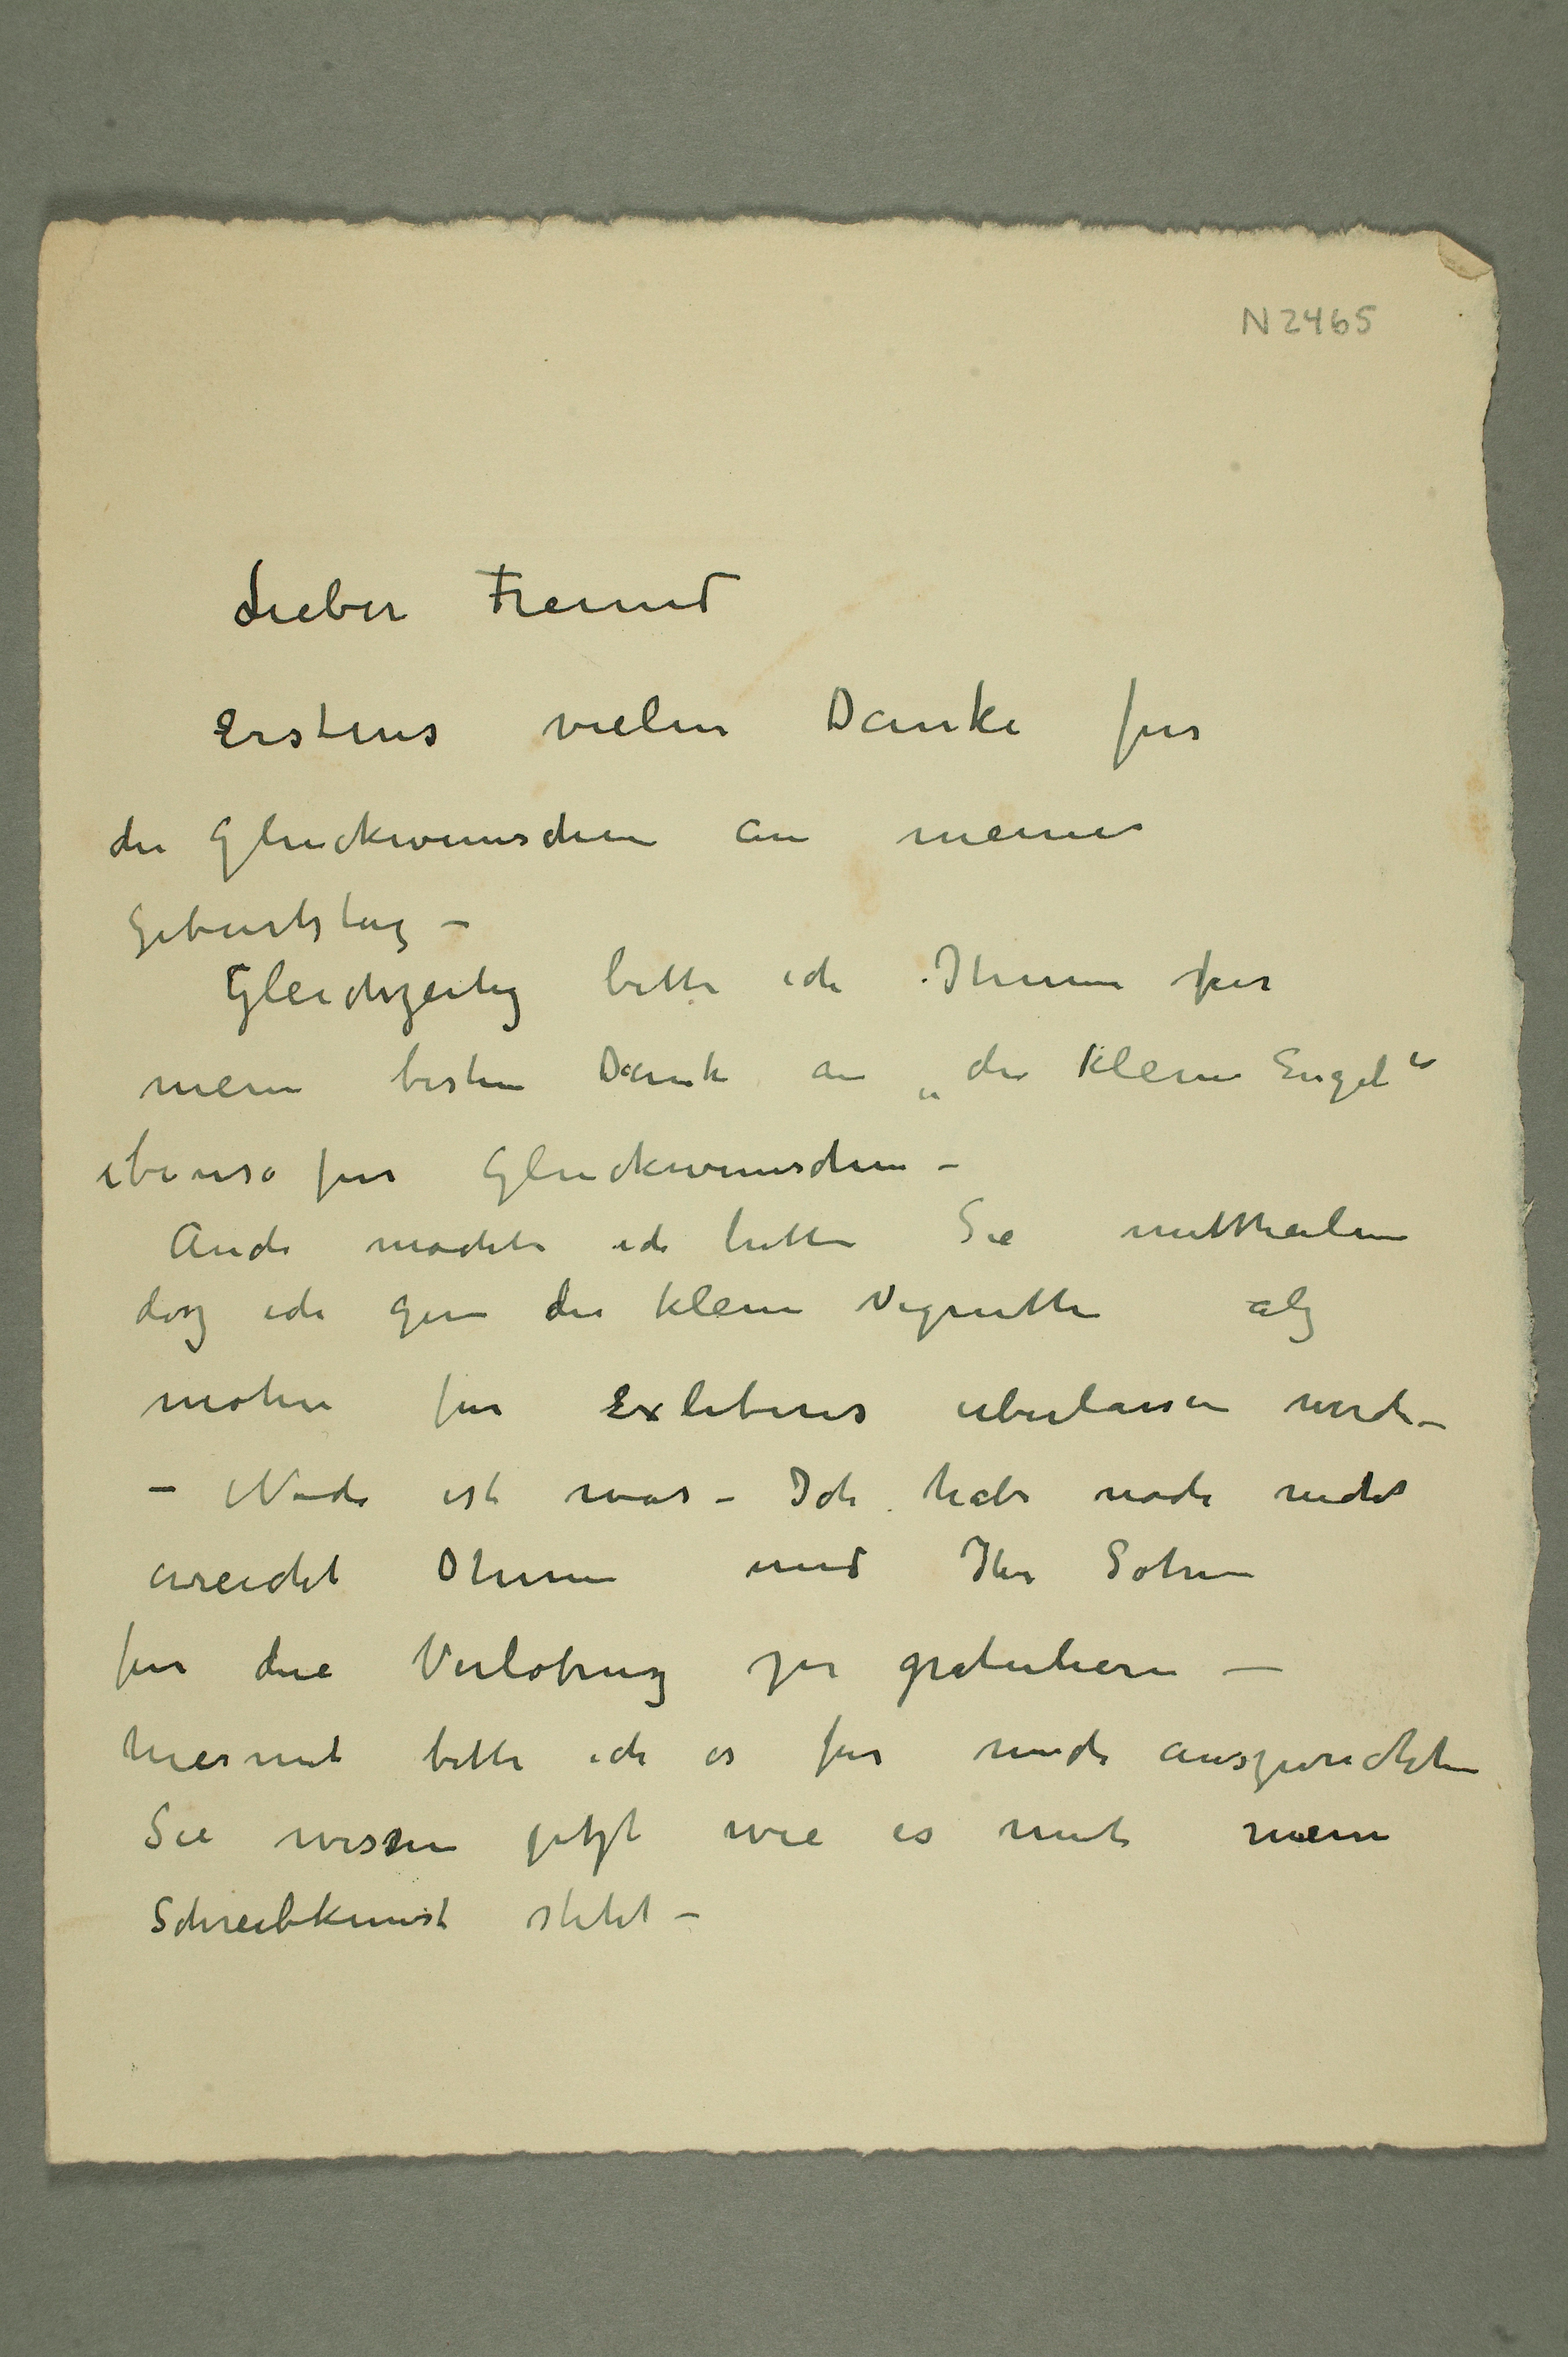 N 2465
Lieber Freund
Erstens vielen Danke fur
die Gluckwunschen an meiner
Geburtstag –
Gleichzeitig bitte ich Ihnen fur
mein besten Dank an „die kleine Engel“
ebenso fur Gluckwunschen –
Auch mochte ich bitten Sie mittheilen
dasz ich gern die kleine Vignette als
motiv fur Exlibris uberlassen werde –
– Noch ist was – Ich habe noch nicht
erreicht Ihnen und Ihr Sohn
fur die Verlobung zu gratulieren –
hiermit bitte ich es fur mich auszurichten
Sie wissen jetzt wie es mit mein
Schreibkunst steht –